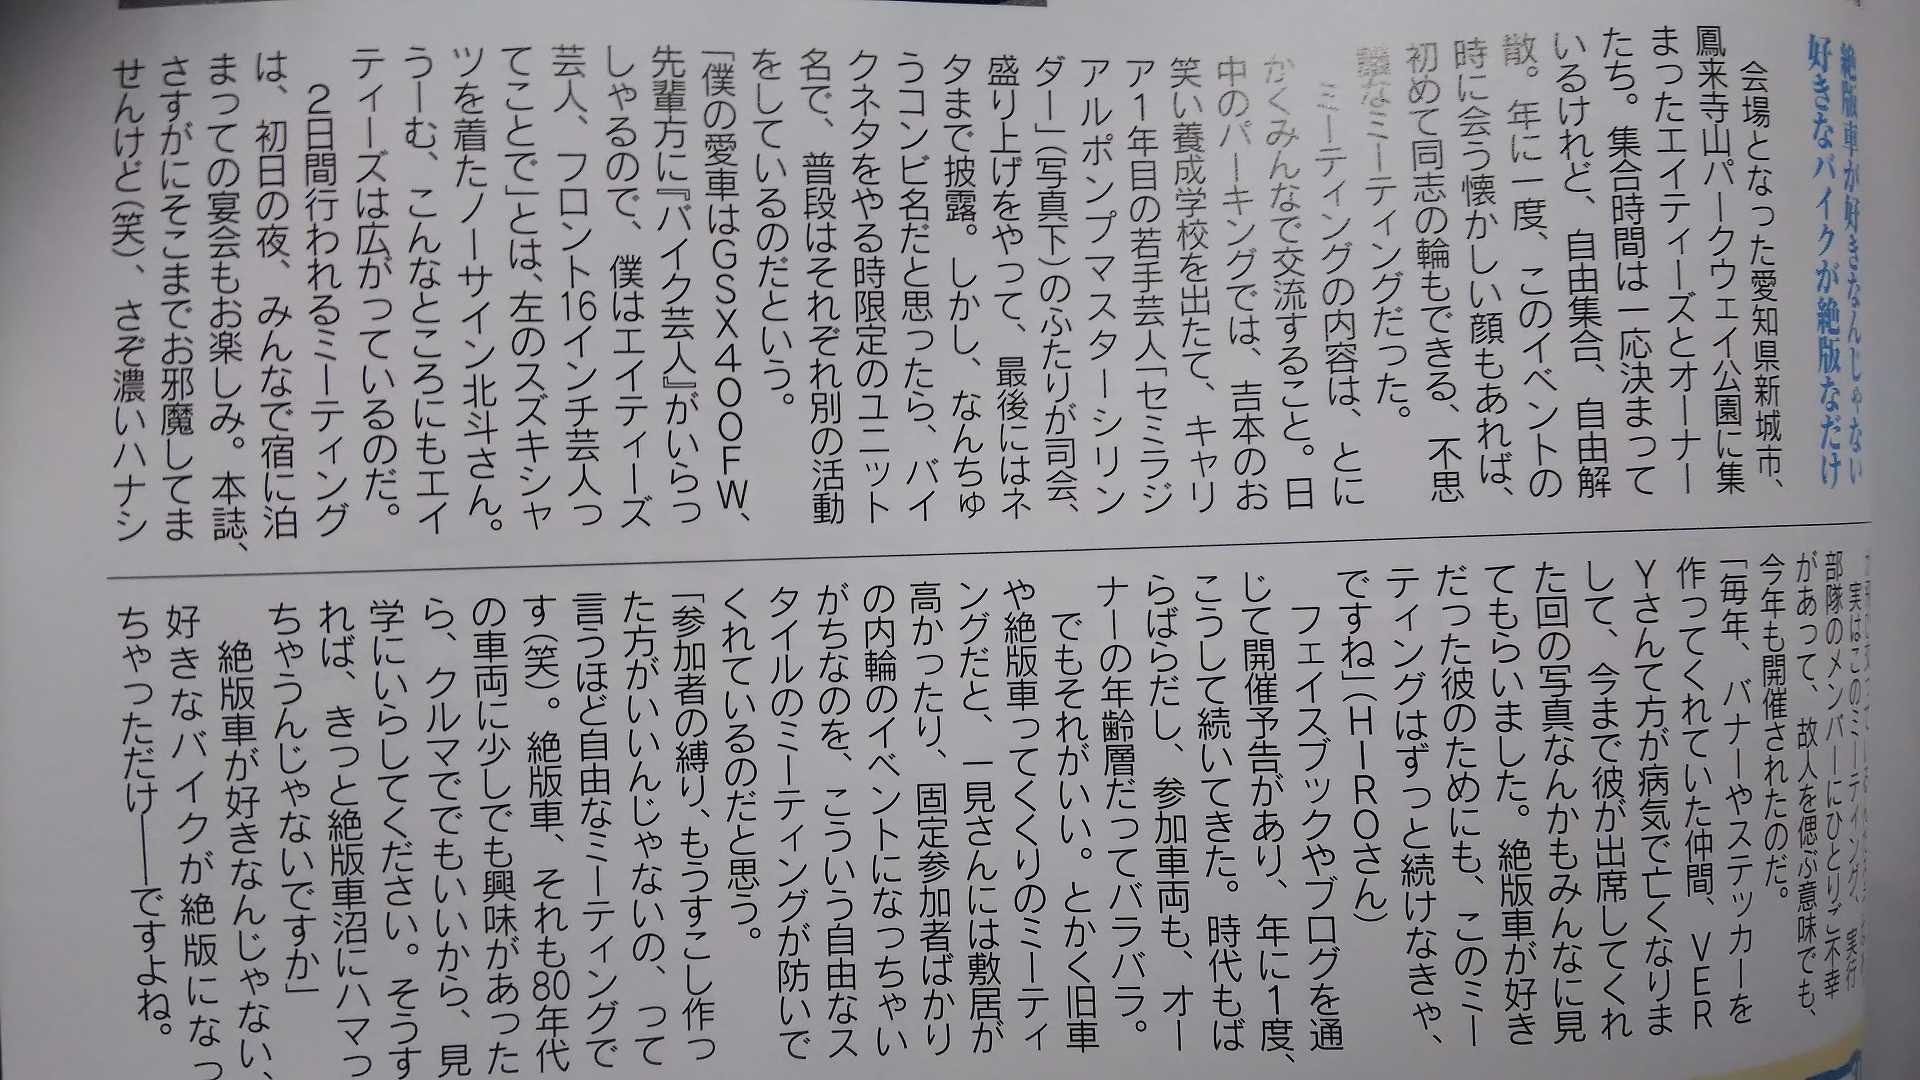 絶版車が好きなんじゃない
好きなバイクが絶版なだけ
会場となった愛知県新城市、
鳳来寺山パークウェイ公園に集
まったエイティーズとオーナー
たち。集合時間は一応決まって
いるけれど、自由集合、自由解
散。年に一度、このイベントの
時に会う懐かしい顔もあれば、
初めて同志の輪もできる、不思
議なミーティングだった。
ミーティングの内容は、とに
かくみんなで交流すること。日
中のパーキングでは、吉本のお
笑い養成学校を出たて、キャリ
ア1年目の若手芸人「セミラジ
アルポンプマスターシリン
ダー」(写真下)のふたりが司会、
盛り上げをやって、最後にはネ
タまで披露。しかし、なんちゅ
うコンビ名だと思ったら、バイ
クネタをやる時限定のユニット
名で、普段はそれぞれ別の活動
をしているのだという。
「僕の愛車はGSX400FW、
先輩方に『バイク芸人』がいらっ
しゃるので、僕はエイティーズ
芸人、フロント16インチ芸人っ
てことで」とは、左のスズキシャ
ツを着たノーサイン北斗さん。
うーむ、こんなところにもエイ
ティーズは広がっているのだ。
2日間行われるミーティング
は、初日の夜、みんなで宿に泊
まっての宴会もお楽しみ。本誌、
さすがにそこまでお邪魔してま
せんけど(笑)、さぞ濃いハナシ
実はこのミーティング、実行
部隊のメンバーにひとりご不幸
があって、故人を偲ぶ意味でも、
今年も開催されたのだ。
「毎年、バナーやステッカーを
作ってくれていた仲間、VER
Yさんて方が病気で亡くなりま
して、今まで彼が出席してくれ
た回の写真なんかもみんなに見
てもらいました。絶版車が好き
だった彼のためにも、このミー
ティングはずっと続けなきゃ、
ですね」(HIROさん)
フェイスブックやブログを通
じて開催予告があり、年に1度、
こうして続いてきた。時代もば
らばらだし、参加車両も、オー
ナーの年齢層だってバラバラ。
でもそれがいい。とかく旧車
や絶版車ってくくりのミーティ
ングだと、一見さんには敷居が
高かったり、固定参加者ばかり
の内輪のイベントになっちゃい
がちなのを、こういう自由なス
タイルのミーティングが防いで
くれているのだと思う。
「参加者の縛り、もうすこし作っ
た方がいいんじゃないの、って
言うほど自由なミーティングで
す(笑)。絶版車、それも80年代
の車両に少しでも興味があった
ら、クルマででもいいから、見
学にいらしてください。そうす
れば、きっと絶版車沼にハマっ
ちゃうんじゃないですか」
絶版車が好きなんじゃない、
好きなバイクが絶版になっ
ちゃっただけ――ですよね。